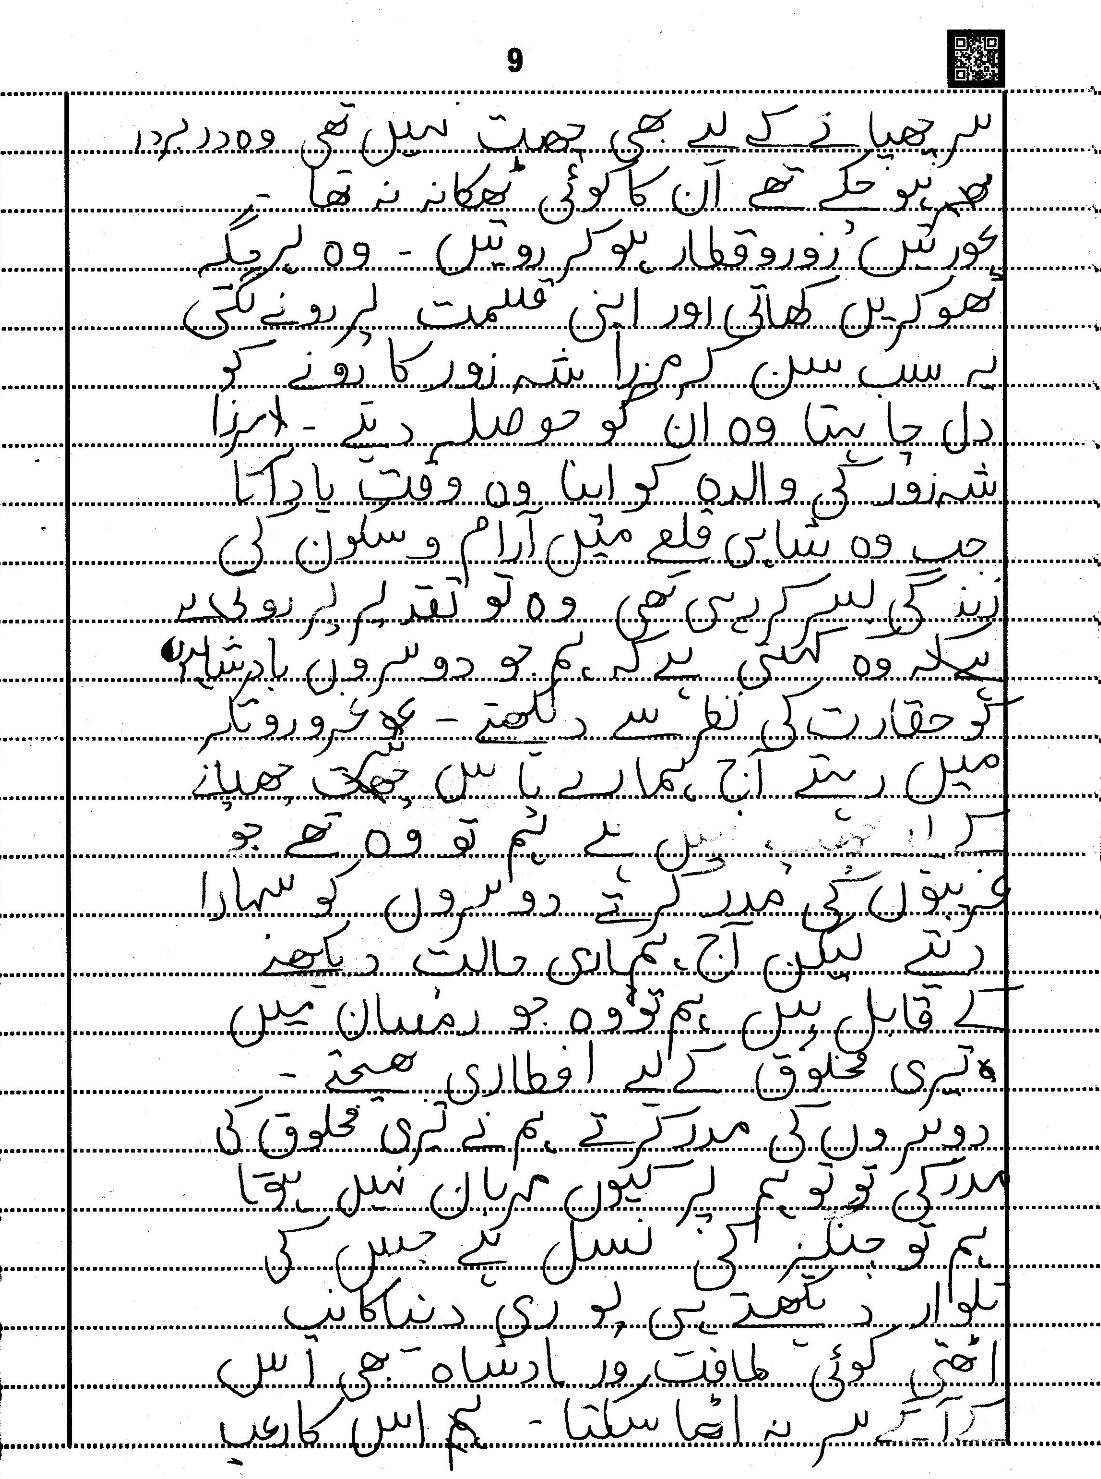 9
سر چھپانے کے لیے بھی چھت نہیں تھی وہ در بردا
ہو چکے تھے ان کا کوئی ٹھکانہ نہ تھا -
عورتیں زور و قطار ہو کر روتیں - وہ ہر جگہ
ٹھوکریں کھاتی اور اپنی قسمت پر رونے لگتی
یہ سب سن کر مرزا شہ زور کا رونے کو
دل چاہتا وہ ان کو حوصلہ دیتے - مرزا
شہ زور کی والدہ کو اپنا وہ وقت یاد آتا
جب وہ شاہی قلعے میں آرام و سکون کی
زندگی بسر کر رہی تھی وہ تو تقدیر پر روتی ہے
وہ کہتی ہے کہ ہم جو دوسروں بادشاہوں
کو حقارت کی نظر سے دیکھتے - غرور و تکبر
میں رہتے آج ہمارے پاس سر چھپانے
کے نہیں ہے ہم تو وہ تھے جو
غریبوں کی مدد کرتے دوسروں کو سہارا
دیتے لیکن آج ہماری حالت دیکھنے
کے قابل ہیں ہم تو وہ جو رمضان میں
تیری مخلوق کے لیے افطاری بھیجتے -
دوسروں کی مدد کرتے ہم نے تیری مخلوق کی
مدد کی تو تو ہم پر کیوں مہربان نہیں ہوتا
ہم تو چنگیز کی نسل ہے جس کی
تلوار دیکھتے ہی پوری دنیا کانپ
اٹھتی کوئی طاقت ور بادشاہ بھی اس
کے آگے سر نہ اٹھا سکتا - ہم اس کا رعب